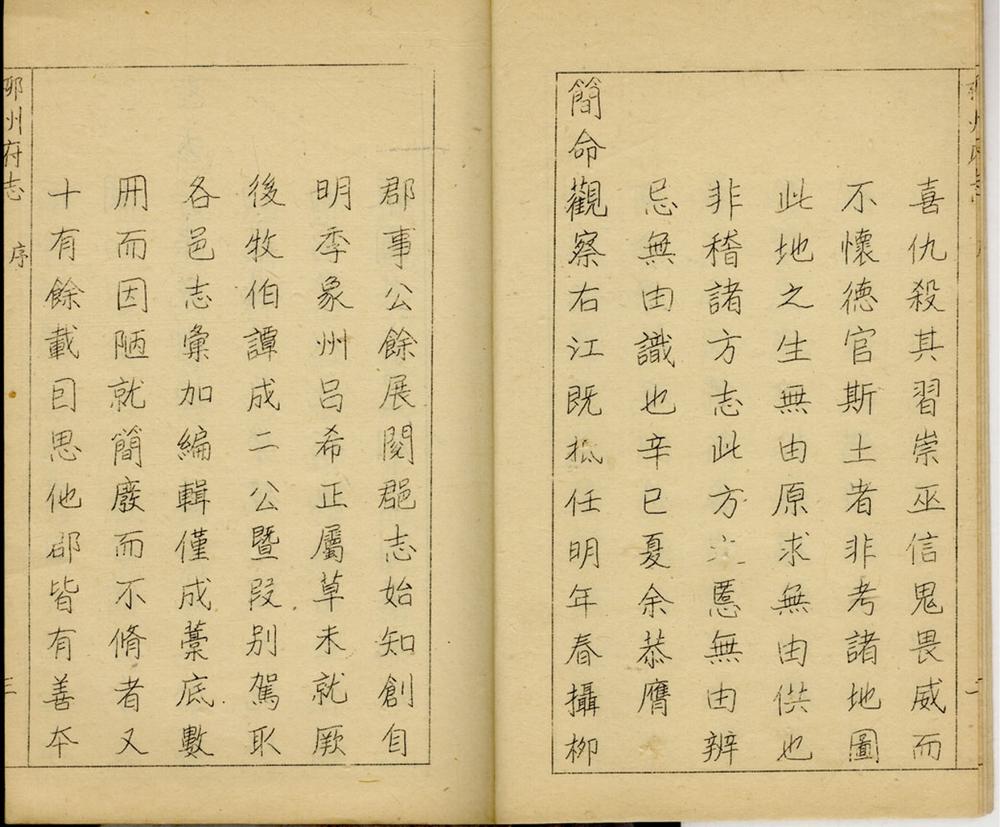 喜仇殺其習崇巫信鬼畏威而
不懷德官斯土者非考諸地圖
此地之生無由原求無由供也
非稽諸方志此方慝無由辨
忌無由識也辛巳夏余恭膺
簡命觀察右江既抵任明年春攝柳
郡事公餘展閱郡志始知創自
明季象州呂希正屬草未就厥
後牧伯譚成二公暨段別駕取
各邑志彙加編輯僅成藁底數
冊而因陋就簡廢而不脩者又
十有餘載因思他郡皆有善本
柳州府志 序 三